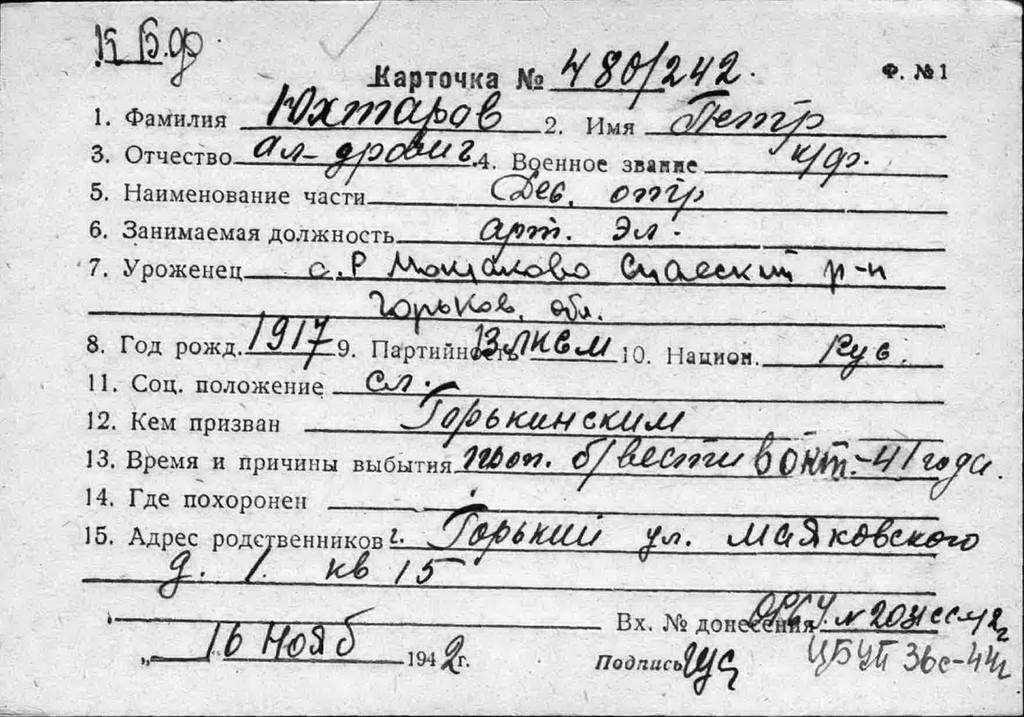 К Б.Ф
Карточка № 480/242. Ф. №1
1. Фамилия Юхтаров 2. Имя Петр
3. Отчество Ал-дрович 4. Военное звание к/ф.
5. Наименование части Дев. отр
6. Занимаемая должность арт. эл.
7. Уроженец с. Р Мокшаково Спасский р-н
Горьков. обл.
8. Год рожд. 1917 9. Партийность ВЛКСМ 10. Национ. Рус.
11. Соц. положение сл.
12. Кем призван Горькинским
13. Время и причины выбытия проп. б/вести в окт.-41 года.
14. Где похоронен
15. Адрес родственников г. Горький ул. Маяковского
д. 1. кв 15
Вх. № донесения №203сс-42г
„ 16 Нояб 1942г. Подпись ЦБУП 36с-44г